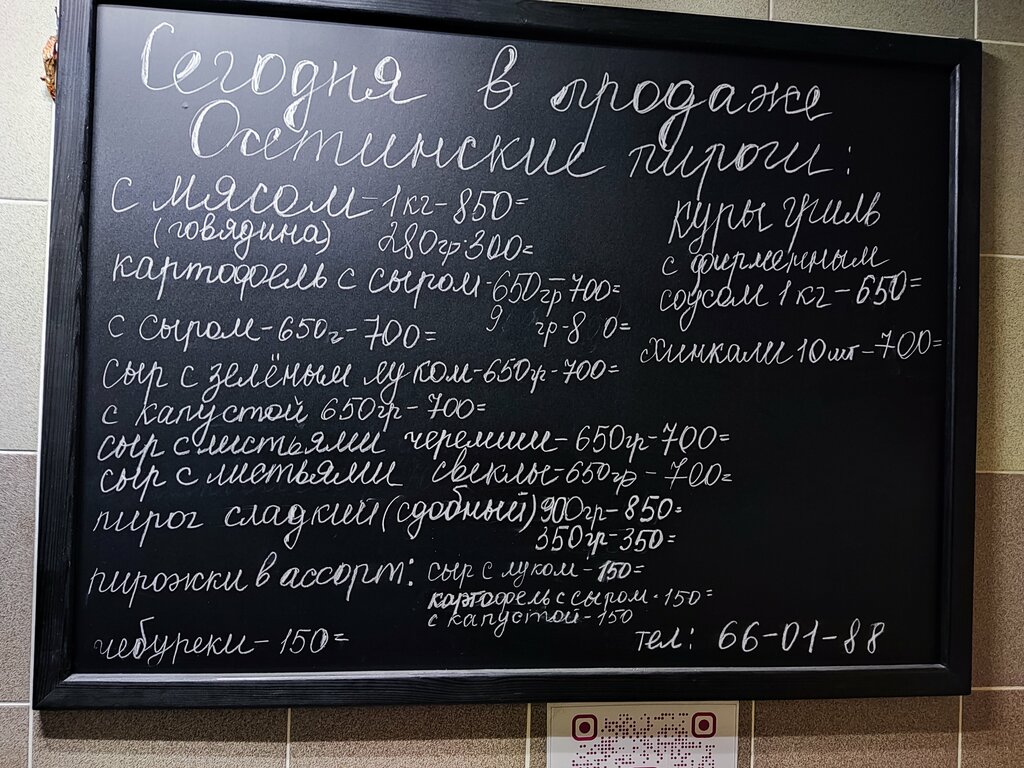 Сегодня в продаже
Осетинские пироги:
с мясом - 1кг - 850=
(говядина) 280гр-300=
картофель с сыром - 650гр - 700=
с сыром - 650г - 700=
9 гр - 8 0=
сыр с зелёным луком - 650гр - 700=
с капустой 650гр - 700=
сыр с листьями черемши - 650гр - 700=
сыр с листьями свеклы - 650гр - 700=
пирог сладкий (сдобный) 900гр - 850=
350гр - 350=
пирожки в ассорт: сыр с луком - 150=
картофель с сыром - 150=
с капустой - 150
чебуреки - 150=
куры гриль
с фирменным
соусом 1кг - 650=
хинкали 10шт - 700=
тел: 66-01-88